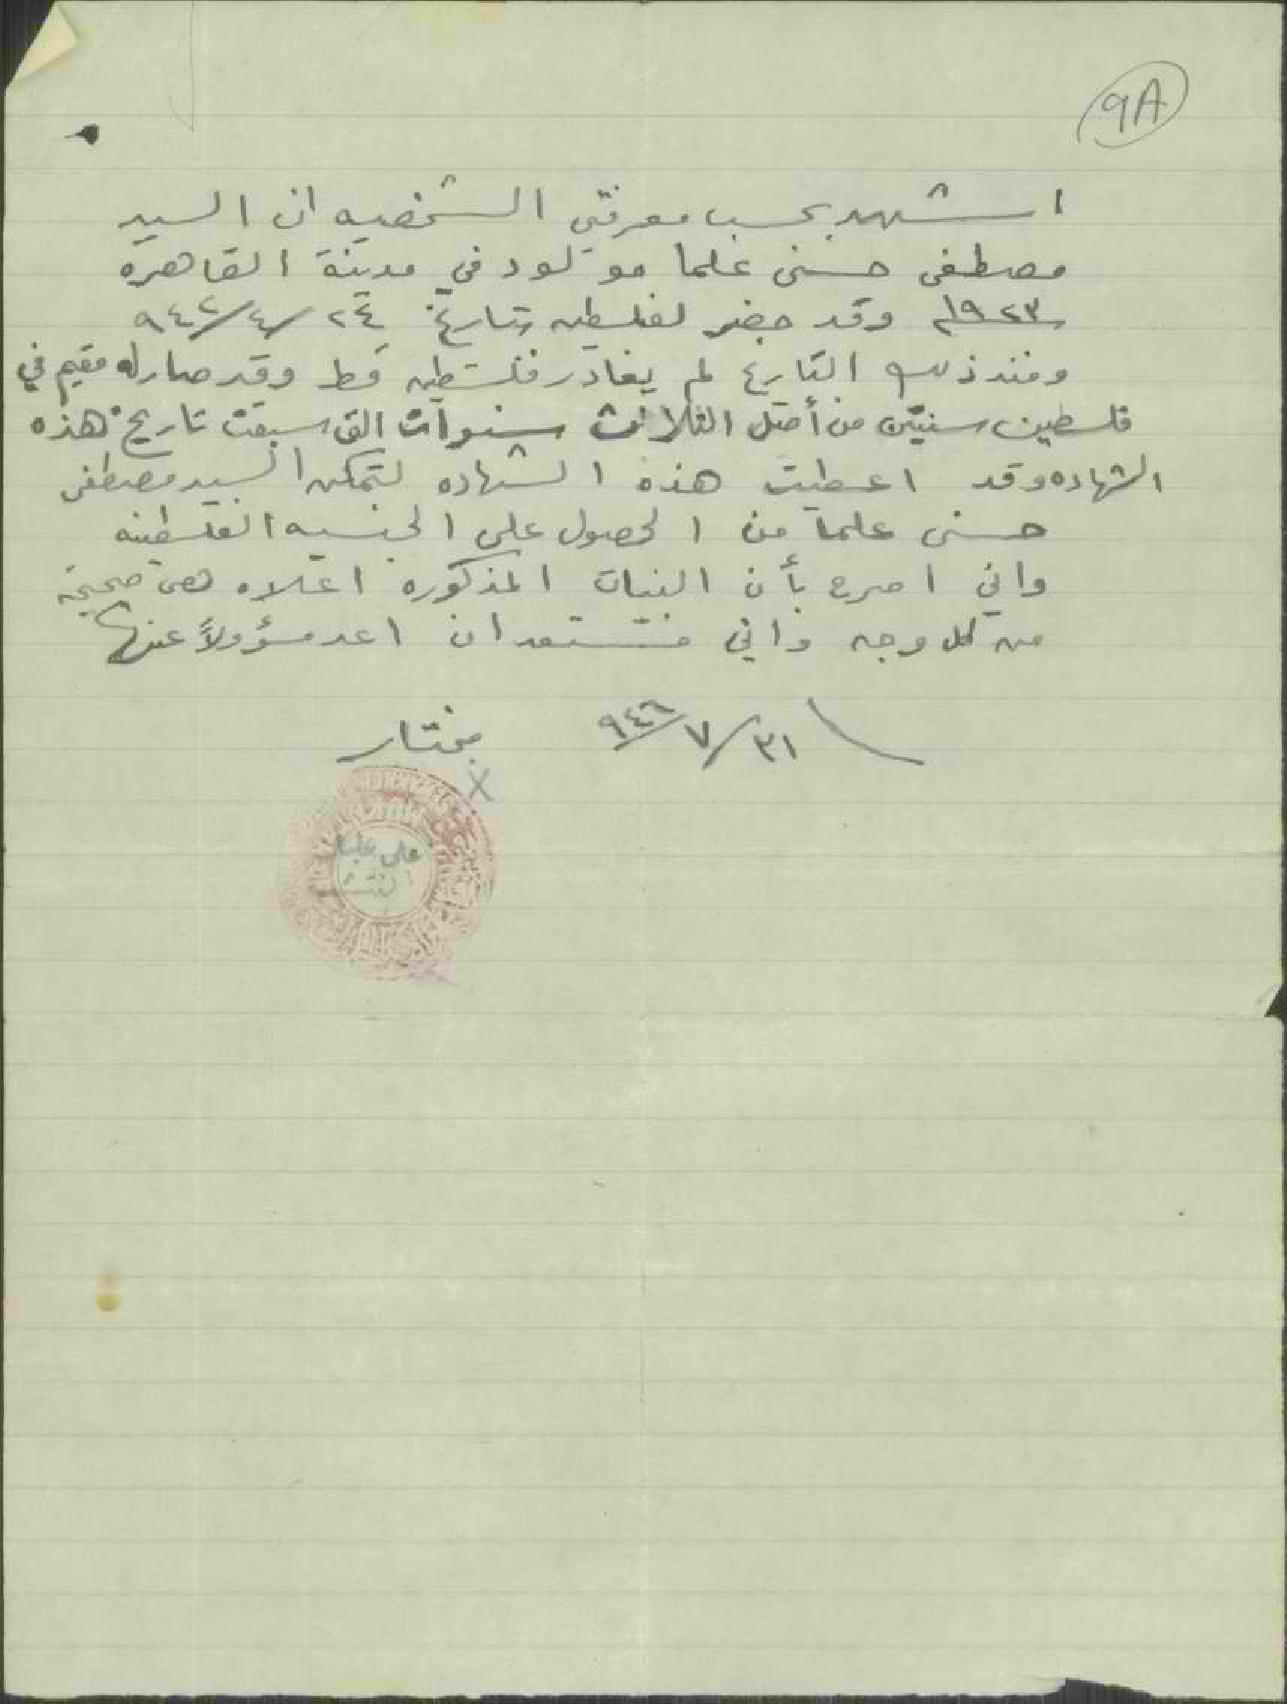 9A
اشهد بحسب معرفتي الشخصيه ان السيد
مصطفى حسني علما مولود في مدينة القاهرة
سنة ١٩٢٣ وقد حضر لفلسطين بتاريخ ٢٤/٤/٩٤٢
ومنذ ذلك التاريخ لم يغادر فلسطين قط وقد صار له مقيم في
فلسطين سنتين من أصل الثلاث سنوات التي سبقت تاريخ هذه
الشهاده وقد اعطيت هذه الشهاده لتمكن السيد مصطفى
حسني علما من الحصول على الجنسيه الفلسطينه
واني اصرح بأن البينات المذكوره اعلاه هي صحيحة
من كل وجه واني مستعد ان اعد مسؤولاً عنها
٣١/٧/٩٤٦ مختار